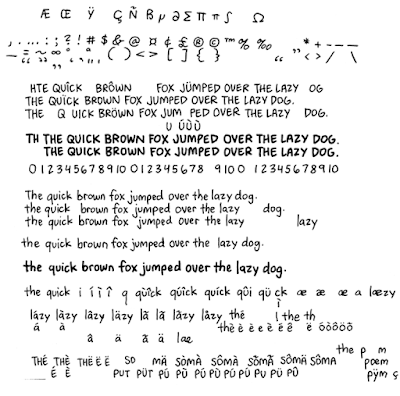 Æ Œ Ÿ Ç Ñ β μ ∂ Σ Π π ∫ Ω
, . … : ; ? ! # $ & @ ¤ ¢ £ ® © ™ % ‰ * + – — —
( ) < > [ ] { } “ „
HTE QUÎCK BRÔWN FOX JÜMPED OVER THE LAZY OG
THE QUÏCK BROWN FOX JUMPED OVER THE LAZY DOG.
THE Q UICK BROWN FOX JUM PED OVER THE LAZY DOG.
U ÚÛÙ
TH THE QUICK BRÖWN FOX JUMPED OVER THE LAZY DOG.
THE QUICK BROWN FOX JUMPED OVER THE LAZY DOG.
0 1 2 3 4 5 6 7 8 9 10 0 1 2 3 4 5 6 7 8 9 10 0 1 2 3 4 5 6 7 8 9 10
The quick brown fox jumped over the lazy dog.
the quick brown fox jumped over the lazy dog.
the quick brown fox jumped over the lazy lazy
the quick brown fox jumped over the lazy dog.
the quick brown fox jumped over the lazy dog.
the quick i í ï ì î q qùîck qúîck quíck qûi qü ck æ æ æ a læzy
î
lázy làzy lâzy läzy lã lã lâzy lâzy thé l the th
á à thè è é e è ë ê ë óòôöõ
â ä ã ä lae
the p m
THÉ THÈ THË Ë Ë SO MÄ SÒMÀ SÔMÂ SÕMÃ SÔMÄ SÔMA poem
É È PUT PÜT PÚ PÙ PÛ PÚ PÛ PÚ PU PÜ PÛ pÿm ç